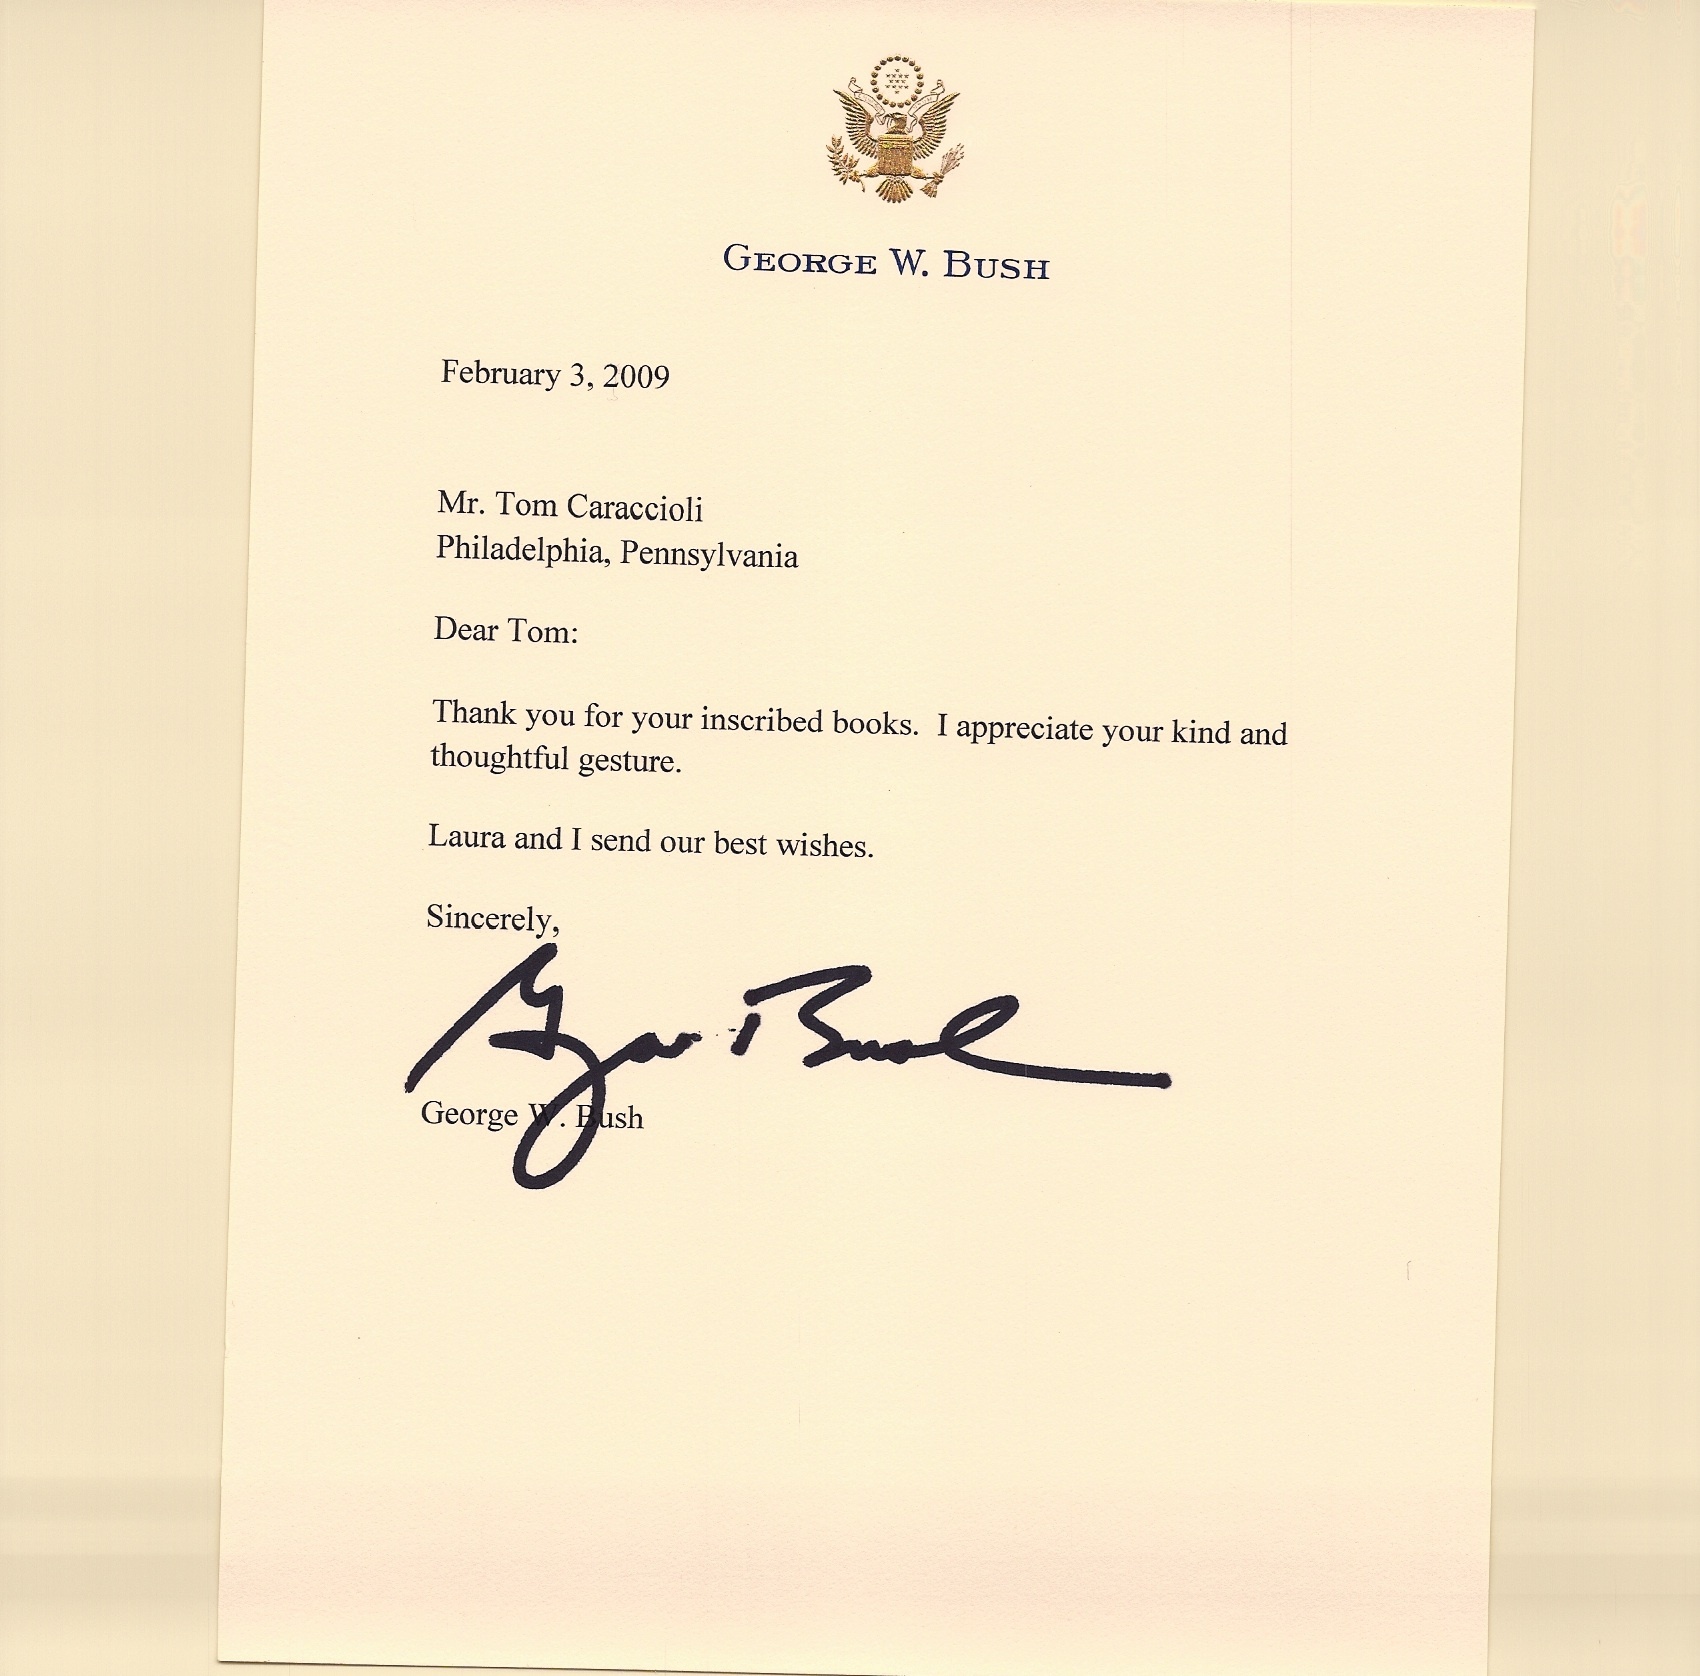 GEORGE W. BUSH
February 3, 2009
Mr. Tom Caraccioli
Philadelphia, Pennsylvania
Dear Tom:
Thank you for your inscribed books.  I appreciate your kind and
thoughtful gesture.
Laura and I send our best wishes.
Sincerely,
George W. Bush